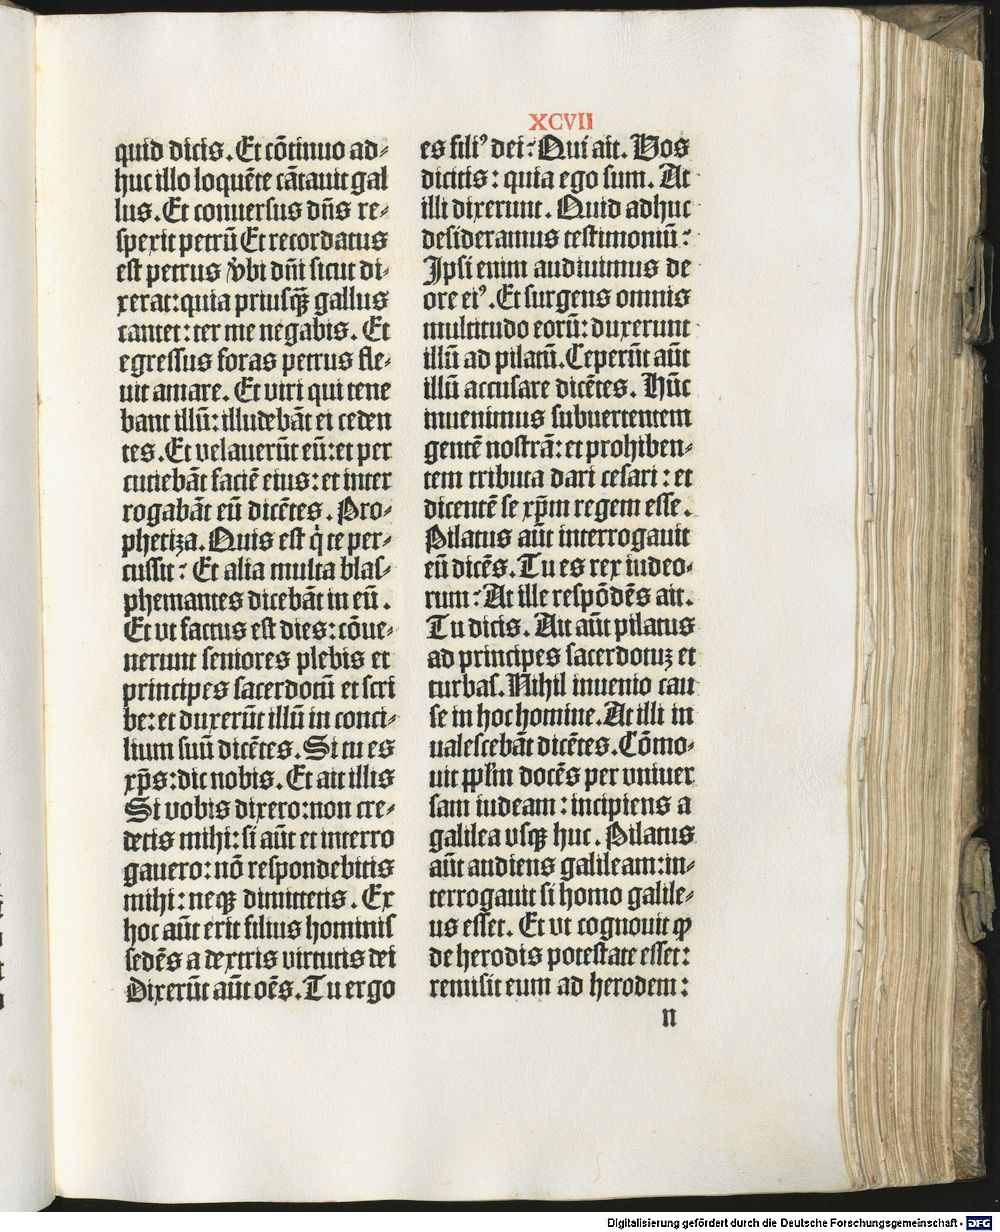 XCVII
quid dicis. Et cōtinuo ad⸗
huc illo loquēte cātauit gal
lus. Et conuersus dn̄s re⸗
spexit petrū Et recordatus
est petrus ꝟbi dn̄i sicut di⸗
xerat: quia priusqꝫ̄ gallus
cantet: ter me negabis. Et
egressus foras petrus fle⸗
uit amare. Et viri qui tene
bant illū: illudebāt ei ceden
tes. Et velauerūt eū: et per
cutiebāt faciē eius: et inter
rogabāt eū dicētes. Pro⸗
phetiza. Quis est qͥ te per⸗
cussit? Et alia multa blas⸗
phemantes dicebāt in eū.
Et vt factus est dies: cōue⸗
nerunt seniores plebis et
principes sacerdotū et scri
be: et duxerūt illū in conci⸗
lium suū dicētes. Si tu es
xp̄s: dic nobis. Et ait illis
Si vobis dixero: non cre⸗
detis mihi: si aūt et interro
gauero: nō respondebitis
mihi: neqꝫ dimittetis. Ex
hoc aūt erit filius hominis
sedēs a dextris virtutis dei
Dixerūt aūt oēs. Tu ergo
es filiꝰ dei? Qui ait. Vos
dicitis: quia ego sum. At
illi dixerunt. Quid adhuc
desideramus testimoniū?
Ipsi enim audiuimus de
ore eiꝰ. Et surgens omnis
multitudo eorū: duxerunt
illū ad pilatū. Ceperūt aūt
illū accusare dicētes. Hūc
inuenimus subuertentem
gentē nostrā: et prohiben⸗
tem tributa dari cesari: et
dicentē se xp̄m regem esse.
Pilatus aūt interrogauit
eū dicēs. Tu es rex iudeo⸗
rum? At ille respōdēs ait.
Tu dicis. Ait aūt pilatus
ad principes sacerdotuꝫ et
turbas. Nihil inuenio cau
se in hoc homine. At illi in
ualescebāt dicētes. Cōmo⸗
uit pp̄lm docēs per vniuer
sam iudeam: incipiens a
galilea vsqꝫ huc. Pilatus
aūt audiens galileam: in⸗
terrogauit si homo galile⸗
us esset. Et vt cognouit ꝙ
de herodis potestate esset:
remisit eum ad herodem:
n
Digitalisierung gefördert durch die Deutsche Forschungsgemeinschaft - DFG